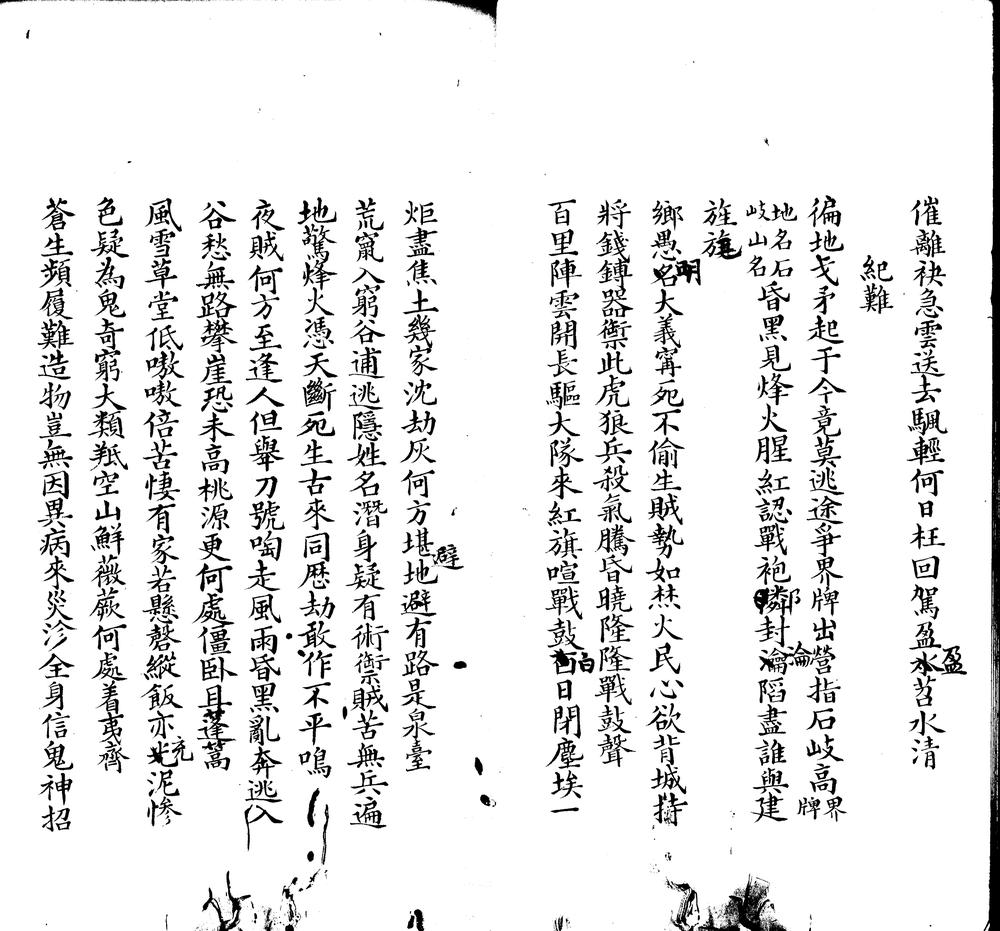 催離袂急雲送去颿輕何日枉回駕盈盈水苕水清
紀難
徧地戈矛起于今竟莫逃途爭界牌出營指石岐高界牌
地名石岐山名昏黑見烽火腥紅認戰袍鄰封淪陷盡誰與建
旌旗
鄉愚明大義寧死不偷生賊勢如焚火民心欲背城持
將錢鎛器禦此虎狼兵殺氣騰昏曉隆隆戰鼓聲
百里陣雲開長驅大隊來紅旗喧戰鼓白日閉塵埃一
炬盡焦土幾家沈劫灰何方堪避地避有路是泉臺
荒竄入窮谷逋逃隱姓名潛身疑有術禦賊苦無兵遍
地驚烽火憑天斷死生古來同歷劫敢作不平鳴
夜賊何方至逢人但舉刀號啕走風雨昏黑亂奔逃入
谷愁無路攀崖恐未高桃源更何處僵臥且蓬蒿
風雪草堂低嗷嗷倍苦悽有家若懸磬縱飯亦充泥慘
色疑為鬼奇窮大類羝空山鮮薇蕨何處着夷齊
蒼生頻履難造物豈無因異病來災沴全身信鬼神招